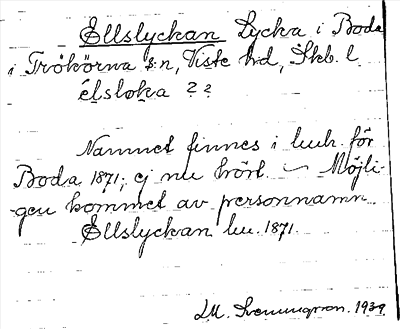 Ellslyckan Lycka i Boda
i Trökörna s:n, Viste hd, Skb. l
élsloka ??
Namnet finnes i luh. för
Boda 1871, ej nu hört. — Möjli-
gen kommet av personnamn.
Ellslyckan lu. 1871.
LM. Svenungsson. 1939